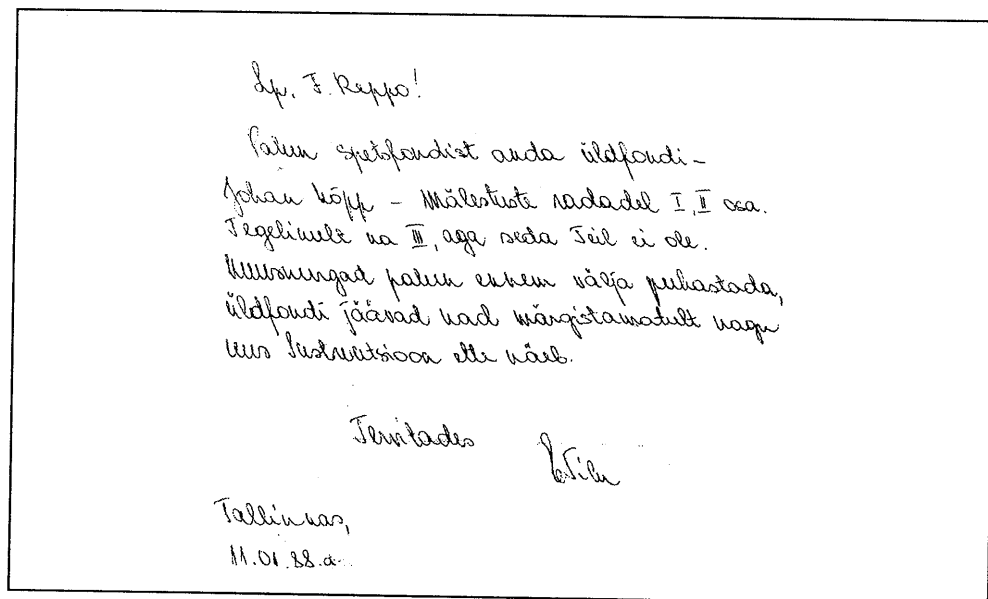 Lp. F. Reppo!
Palun spetsfondist anda üldfondi -
Johan Kõpp - Mälestuste radadel I, II osa.
Tegelikult ka III, aga seda Teil ei ole.
Kuusnurgad palun ennem välja puhastada,
üldfondi jäävad nad märgistamatult nagu
uus Instruktsioon ette näeb.
Tervitades
Tallinnas,
11.01.88.a.